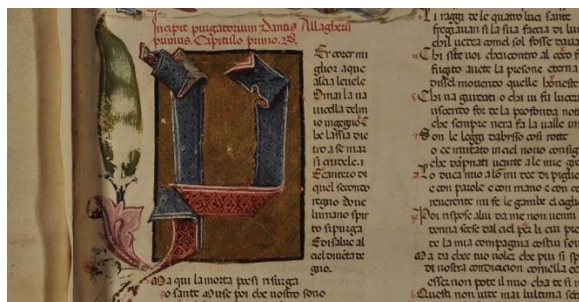 Incipit purgatorium Dantis Allagherii
primus. Capitulo primo.
Er correr mi
glior aque
alça le uele
Omai la na
uicella del mi
o ingegno C
he lassa die
tro a se mar
si crudele.
E cantero di
quel secondo
regno doue
lumano spir
to si purga
E di salire al
ciel diuenta de
gno.
Ma qui la morta poesi risurga
o sante Muse poi che uostro sono
Li raggi de le quatro luci sante
fregiauan si la sua faccia di lum
chil uedea comel sol fosse daua
Chi siete uoi che contro al ceco fi
fugito auete la presone eterna
dissel mouendo quelle honeste
Chi ua guidati o chi ui fu lucer
uscendo for de la profonda nott
che sempre nera fa la ualle in
Son le leggi dabisso cosi rotte
o ce mutato in ciel nouo consig
che dapnati uenite a le mie gro
Lo duca mio alo mi dee di piglio
e con parole e con mano e con ce
reuerente mi fe le gambe el cigli
Poi rispose alui da me non uenni
donna scese dal ciel per li cui pre
de la mia compagna costui sou
Ma da chee tuo uoler che piu si sp
di nostra condicion comella e
esser non pote il mio cha te si n
Questi non uide mai lultima se